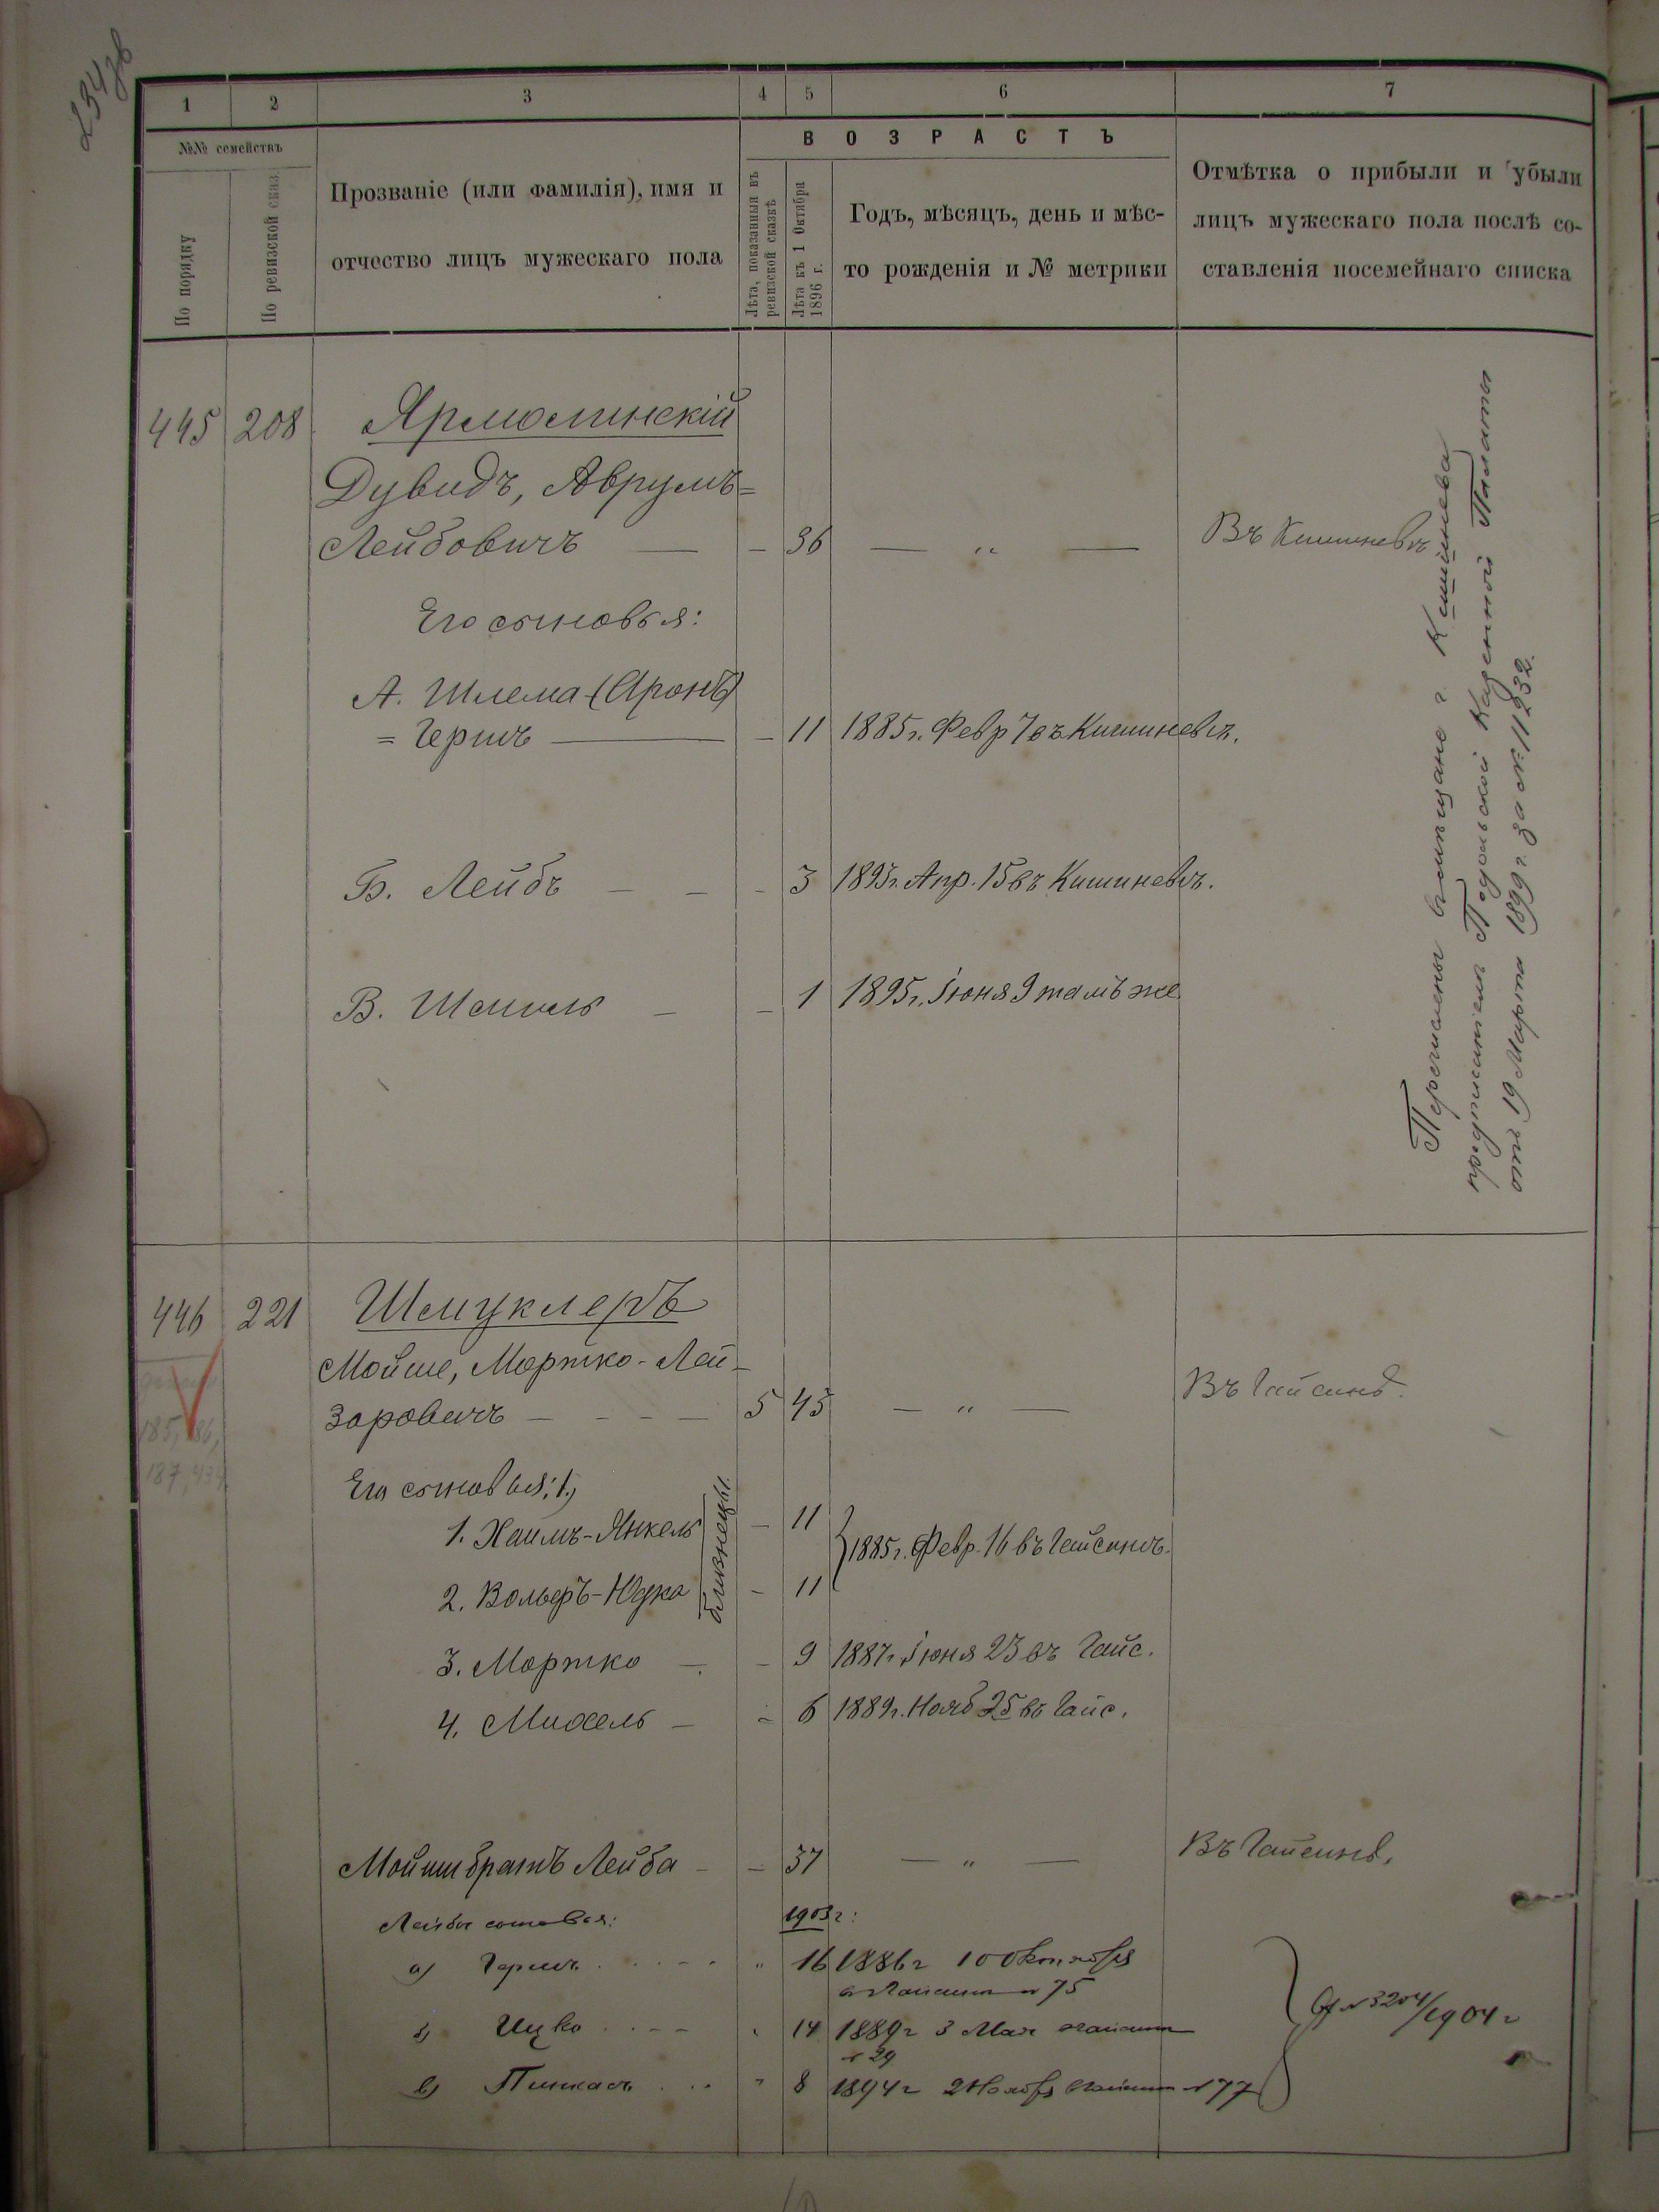 1 2 3 4 5 6 7
№№ семействъ
По порядку
По ревизской сказ.
Прозваніе (или фамилія), имя и
отчество лицъ мужескаго пола
ВОЗРАСТЪ
Лѣта, показанныя въ
ревизской сказкѣ
Лѣта къ 1 Октября
1896 г.
Годъ, мѣсяцъ, день и мѣс-
то рожденія и № метрики
Отмѣтка о прибыли и убыли
лицъ мужескаго пола послѣ со-
ставленія посемейнаго списка
445 208 Ярмолинскій
Дувидъ, Аврумъ=
Лейбовичъ — – 36 — „ — Въ Кишиневѣ
Его сыновья:
А. Шлема (Аронъ)
= Гершъ — – 11 1885 г. Февр 7 въ Кишиневѣ.
Б. Лейбъ – – – 3 1893 г. Апр. 15 въ Кишиневѣ.
В. Шмиль – – 1 1895 г. Іюня 9 тамъ же
Перечислены въ мѣщане г. Кишинева
предписаніемъ Подольской Казенной Палаты
отъ 19 Марта 1899 г. за № 11232.
446 221 Шмуклеръ
Мойше, Мортко-Лей-
заровичъ – – – – 5 43 — „ — Въ Гайсинѣ.
Его сыновья:
1. Хаимъ-Янкель – 11
близнецы
1885 г. Февр. 16 въ Гайсинѣ.
2. Вольфъ-Юдка – 11
3. Мортко – – 9 1887 г. Іюня 23 въ Гайс.
4. Михель – – 6 1889 г. Нояб 25 въ Гайс.
Мойши братъ Лейба – – 37 — „ — Въ Гайсинѣ.
Лейбы сыновья: 1903 г:
а) Гершъ „ 16 1886 г 10 Октября
в Гайсинѣ № 75
б) Ицко „ 14 1889 г 3 Мая в Гайсинѣ
№ 29
в) Пинкасъ „ 8 1894 г 2 Ноября в Гайсинѣ № 77
№ 3204/1904 г